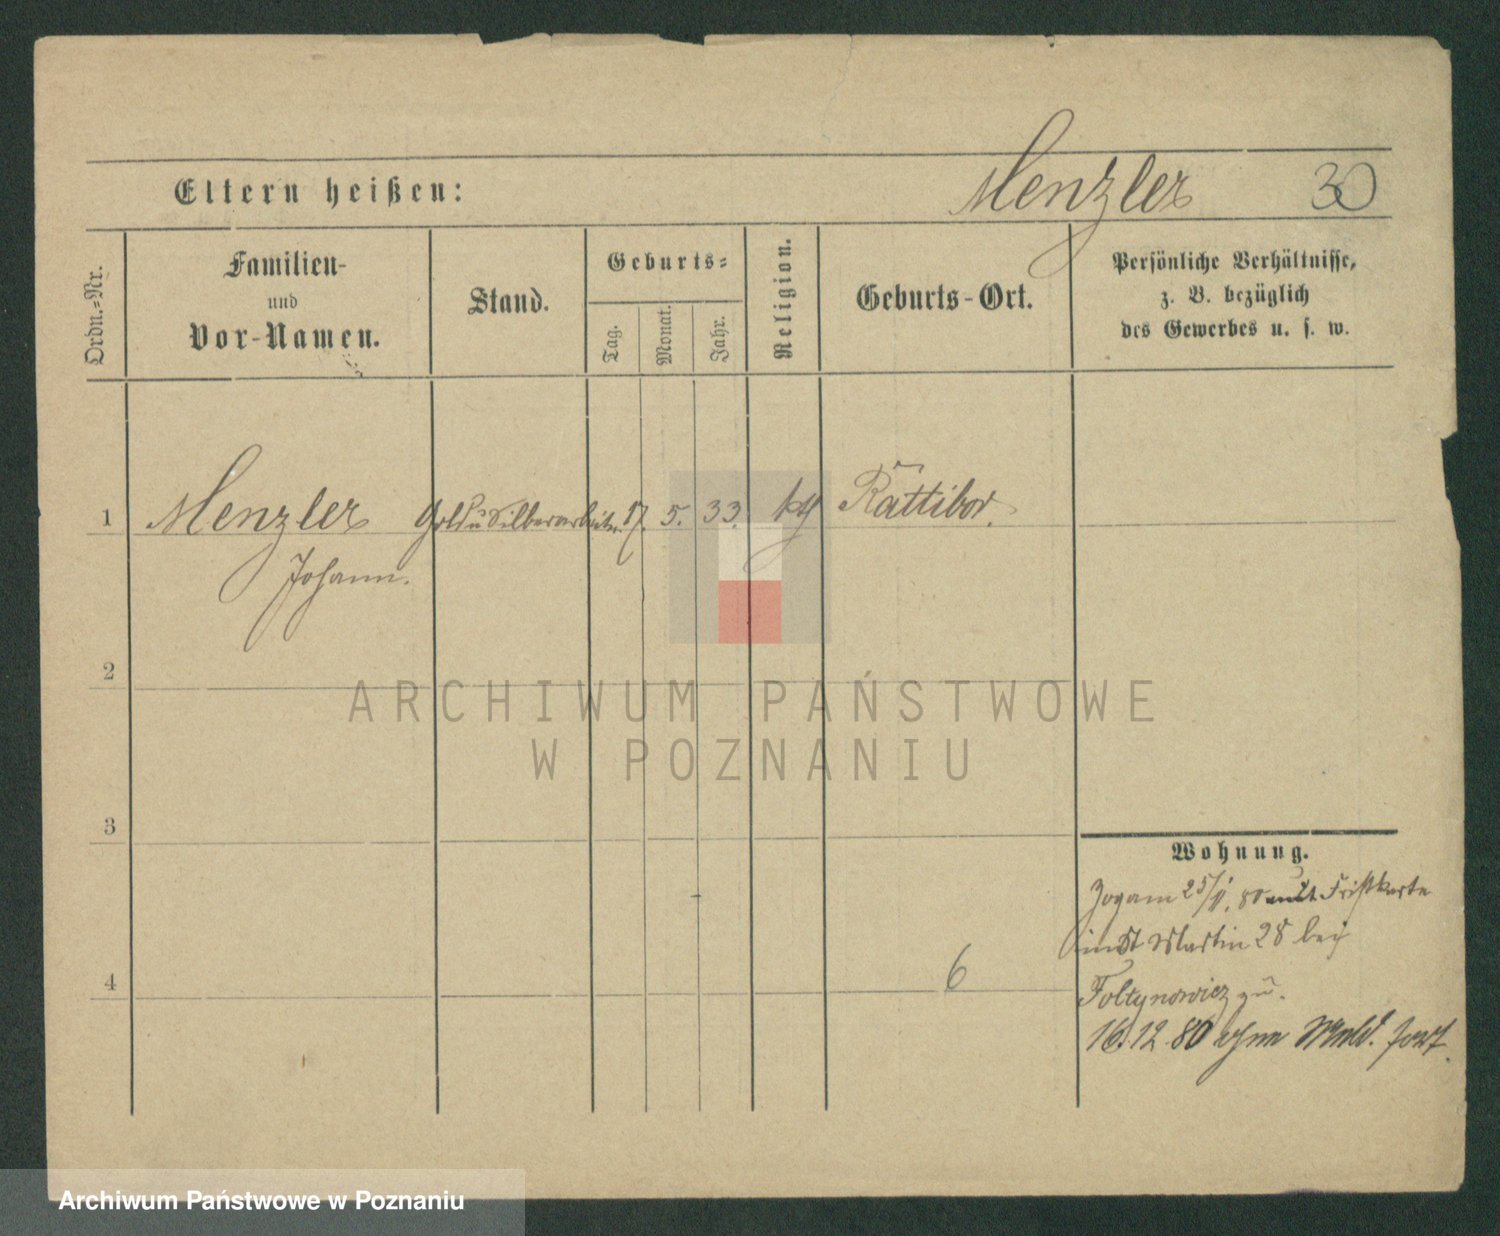 Menzler 30
Eltern heißen:
Ordn.-Nr.
Familien-
und
Vor-Namen.
Stand.
Geburts-
Tag.
Monat.
Jahr.
Religion.
Geburts-Ort.
Persönliche Verhältnisse,
z. B. bezüglich
des Gewerbes u. s. w.
1 Menzler Gold u Silberarbeiter 17. 5. 33. Rattibor.
Johann.
2
ARCHIWUM PAŃSTWOWE
W POZNANIU
3
Wohnung.
Zog am 25/11. 80 mit Fristkarte
in St Martin 28 bei
4 6 Foltynowicz zu.
16.12.80 ohne Meld. fort.
Archiwum Państwowe w Poznaniu